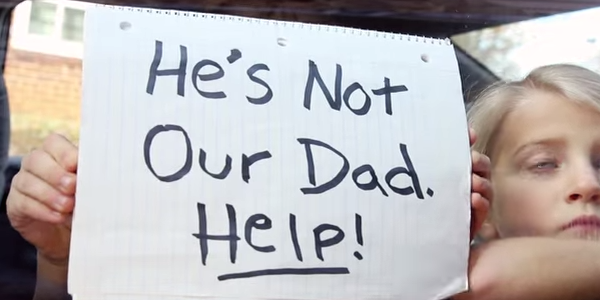 He's Not
Our Dad.
Help!